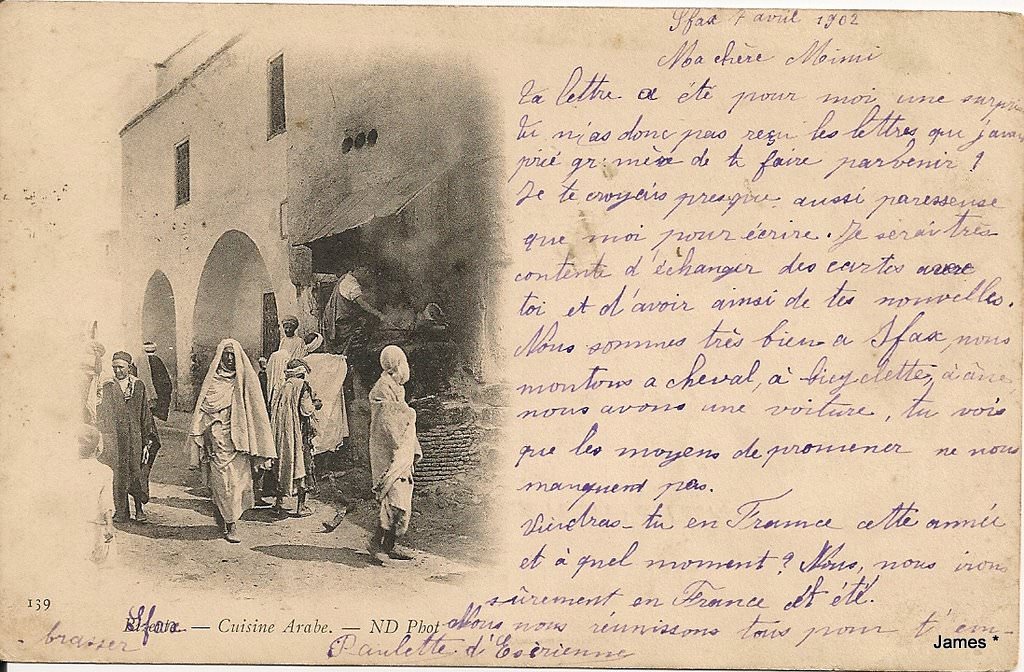 Sfax 7 avril 1902
Ma chère Mimi
Ta lettre a été pour moi une surprise
tu n'as donc pas reçu les lettres que j'avais
prié gr. mère de te faire parvenir ?
Je te croyais presque aussi paresseuse
que moi pour écrire. Je serais très
contente d'échanger des cartes avec
toi et d'avoir ainsi de tes nouvelles.
Nous sommes très bien a Sfax, nous
montons a cheval, à bicyclette, à âne
nous avons une voiture, tu vois
que les moyens de promener ne nous
manquent pas.
Viendras-tu en France cette année
et à quel moment ? Nous, nous irons
sûrement en France cet été.
Nous nous réunissons tous pour t'em-
brasser
Paulette d'
139
Sfax — Cuisine Arabe. — ND Phot
James *